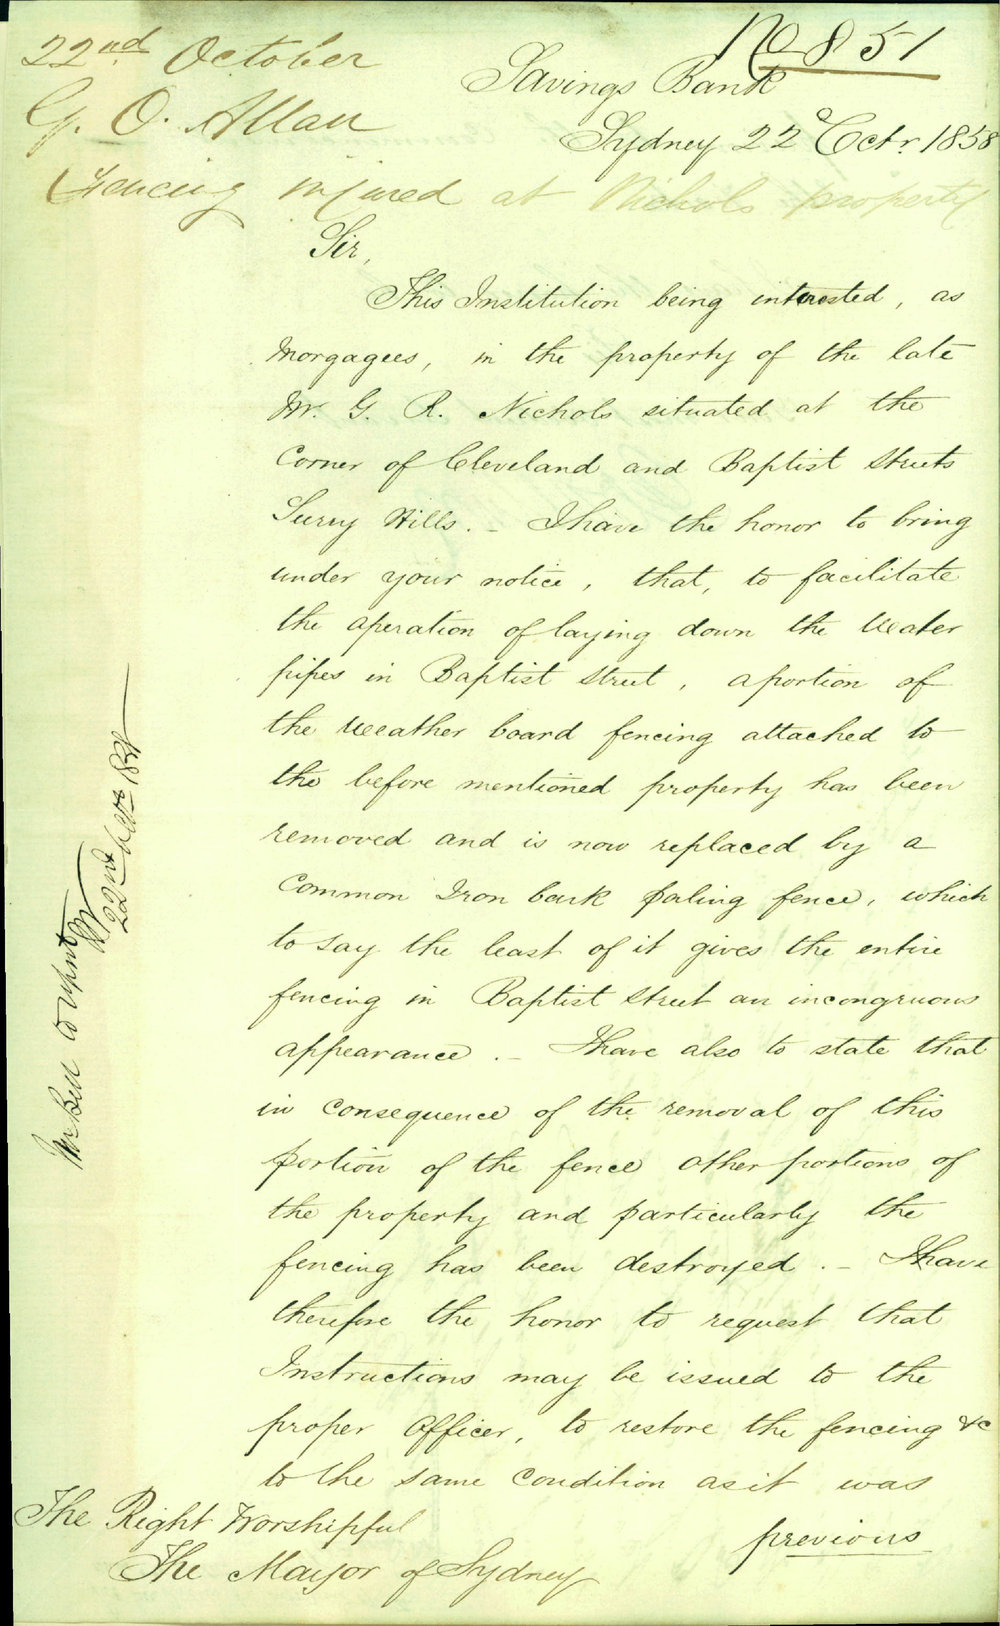 22nd October
No 851
G. O. Allan
Savings Bank
Sydney 22 Octr. 1858
Fencing injured at Nichols property
Sir,
This Institution being interested, as
Morgagees, in the property of the late
Mr. G. R. Nichols situated at the
Corner of Cleveland and Baptist Streets
Surry Hills. - I have the honor to bring
under your notice, that, to facilitate
the operation of laying down the Water
pipes in Baptist Street, a portion of
the Weather board fencing attached to
the before mentioned property has been
removed and is now replaced by a
Common Iron bark paling fence, which
to say the least of it gives the entire
fencing in Baptist Street an incongruous
appearance. - I have also to state that
in consequence of the removal of this
portion of the fence other portions of
the property and particularly the
fencing has been destroyed. - I have
therefore the honor to request that
Instructions may be issued to the
proper Officer, to restore the fencing &c
to the same condition as it was
previous
The Right Worshipful
The Mayor of Sydney
Mr Bell
22nd